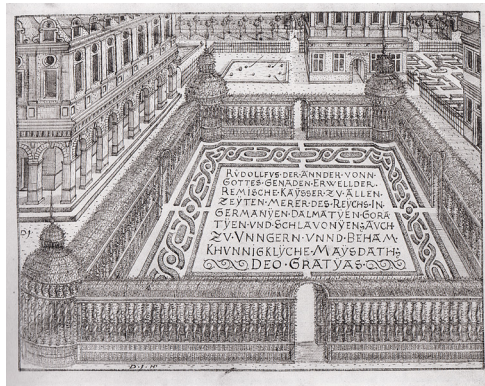 RŸDOLLFVS·DER·ANNDER·VONN·
GOTTES·GENADEN·ERWELLDER·
REMISCHE·KAŸSSER·ZV·ALLEN·
ZEYTEN·MERER·DES·REYCHS·IN·
GERMANŸEN·DALMATŸEN·GORA
TŸEN·VND·SCHLAVONŸEN·AVCH·
ZV·VNNGERN·VNND·BEHAM·
KHVNNIGKLŸCHE·MAŸSDATH·
DEO·GRATŸAS·